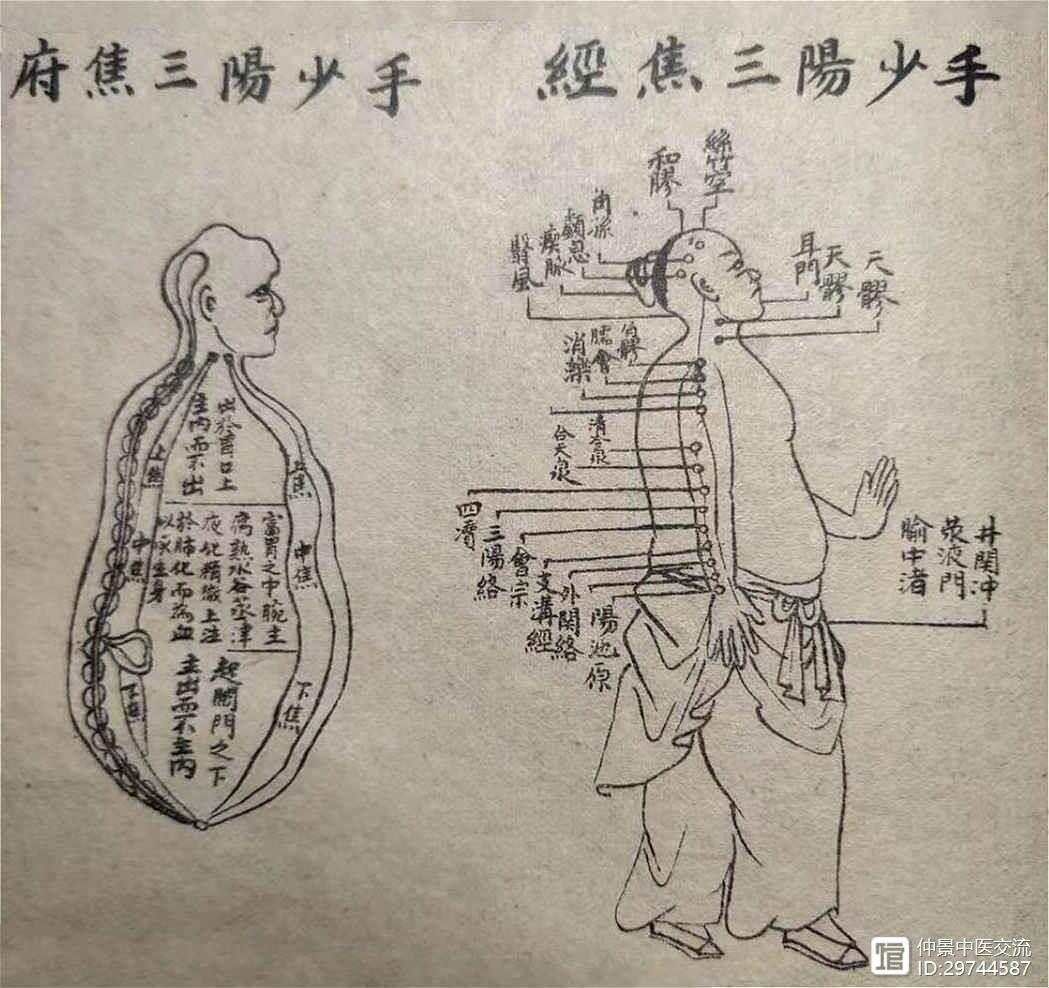 手少陽三焦經
手少陽三焦府
絲竹空
和髎
角孫
顱息
瘈脉
翳風
耳門
天髎
天髎
肩髎
臑會
消濼
清冷泉
合天泉
四瀆
三陽絡
會宗
支溝經
外関絡
陽池原
井関冲
滎液門
腧中渚
出於胃口上
主内而不出
上焦
上焦
當胃之中脘主
腐熟水谷蒸津
液化精微上注
於肺化而為血
以養生身
中焦
中焦
起開門之下
主出而不主内
下焦
下焦
仲景中医交流
ID:29744587